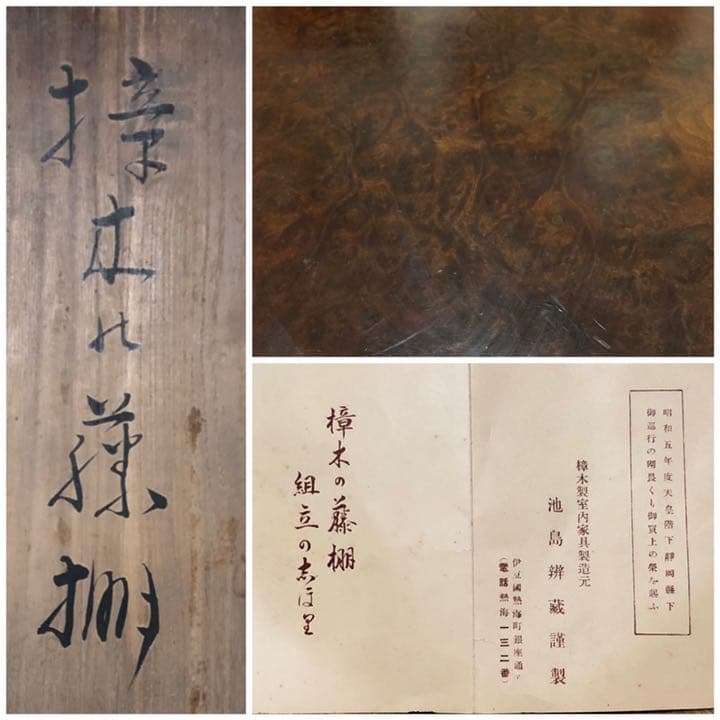 樟木の藤棚
昭和五年度天皇陛下靜岡縣下
御巡行の砌畏くも御買上の榮を賜ふ
樟木製室內家具製造元
池島辨藏謹製
伊豆國熱海町銀座通り
(電話熱海一三二番)
樟木の藤棚
組立の志ほ里